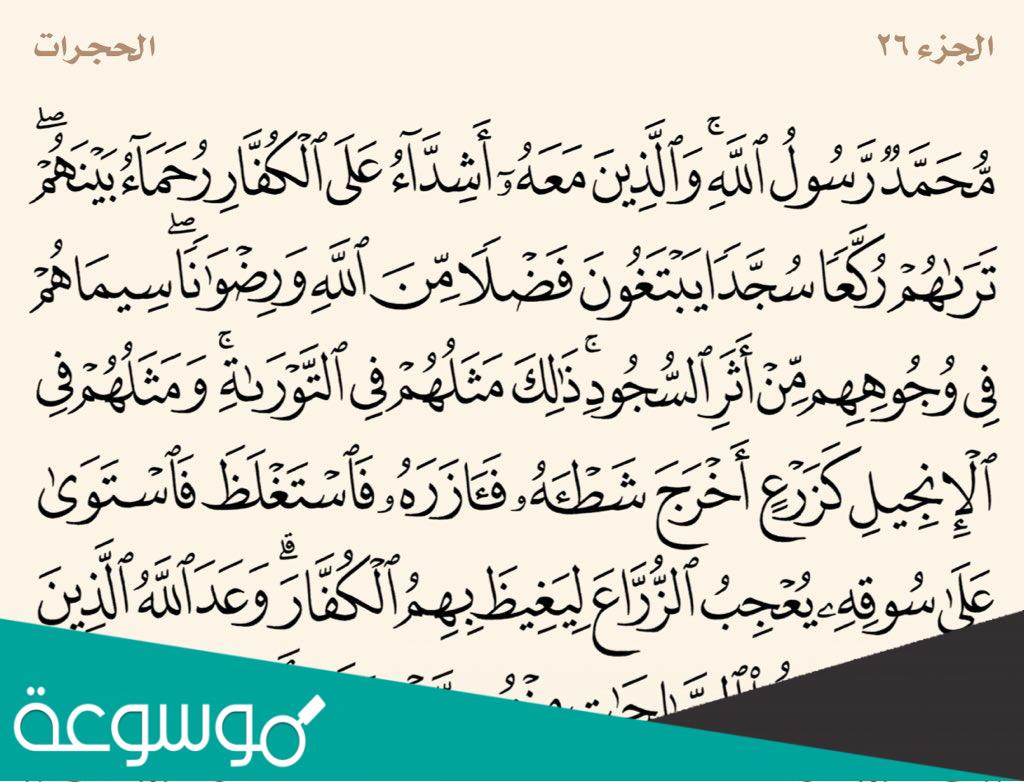 الجزء ٢٦
الحجرات
مُّحَمَّدٌ رَّسُولُ ٱللَّهِۚ وَٱلَّذِينَ مَعَهُۥٓ أَشِدَّآءُ عَلَى ٱلْكُفَّارِ رُحَمَآءُ بَيْنَهُمْۖ
تَرَىٰهُمْ رُكَّعًا سُجَّدًا يَبْتَغُونَ فَضْلًا مِّنَ ٱللَّهِ وَرِضْوَٰنًاۖ سِيمَاهُمْ
فِى وُجُوهِهِم مِّنْ أَثَرِ ٱلسُّجُودِۚ ذَٰلِكَ مَثَلُهُمْ فِى ٱلتَّوْرَىٰةِۚ وَمَثَلُهُمْ فِى
ٱلْإِنجِيلِ كَزَرْعٍ أَخْرَجَ شَطْـَٔهُۥ فَـَٔازَرَهُۥ فَٱسْتَغْلَظَ فَٱسْتَوَىٰ
عَلَىٰ سُوقِهِۦ يُعْجِبُ ٱلزُّرَّاعَ لِيَغِيظَ بِهِمُ ٱلْكُفَّارَۗ وَعَدَ ٱللَّهُ ٱلَّذِينَ
موسوعة